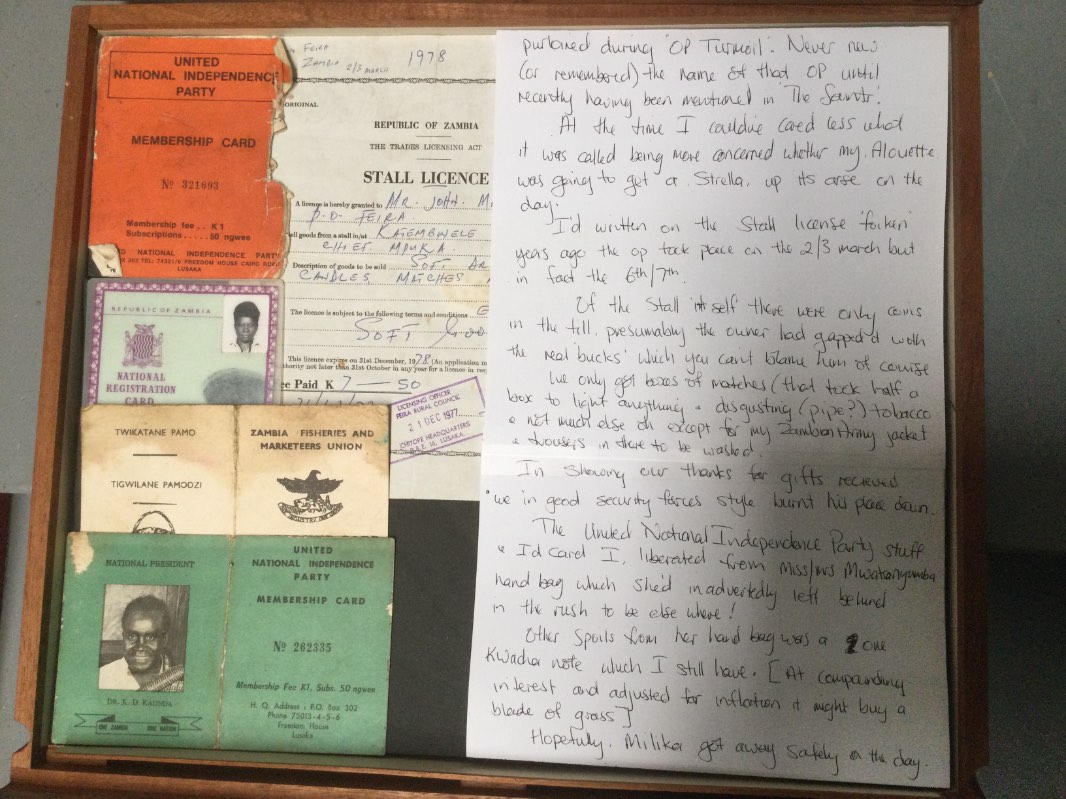 UNITED
NATIONAL INDEPENDENCE
PARTY
MEMBERSHIP CARD
Nº 321693
Membership fee .. K1
Subscriptions ..... 50 ngwee
D NATIONAL INDEPENDENCE PARTY
LUSAKA
REPUBLIC OF ZAMBIA
NATIONAL
REGISTRATION
CARD
TWIKATANE PAMO
TIGWILANE PAMODZI
ZAMBIA FISHERIES AND
MARKETEERS UNION
NATIONAL PRESIDENT
DR. K. D. KAUNDA
ONE ZAMBIA ONE NATION
UNITED
NATIONAL INDEPENDENCE
PARTY
MEMBERSHIP CARD
Nº 262335
Membership Fee K1, Subs. 50 ngwee
H. Q. Address : P.O. Box 302
Phone 75013-4-5-6
Freedom House
Lusaka
FEIRA
ZAMBIA 2/3 MARCH 1978
ORIGINAL
REPUBLIC OF ZAMBIA
THE TRADES LICENSING ACT
STALL LICENCE
A licence is hereby granted to MR. JOHN. M
P.O. FEIRA
ell goods from a stall in/at KATEMBWELE
CHIEF MPUKA
Description of goods to be sold SOFT DR
CANDLES MATCHES
The licence is subject to the following terms and conditions
SOFT Goo
This licence expires on 31st December, 1978 (An application m
thority not later than 31st October in any year for a licence in resp
ee Paid K 7 — 50
LICENSING OFFICER
FEIRA RURAL COUNCIL
21 DEC 1977
LUSAKA.
purloined during 'OP Turmoil'. Never new
(or remembered) the name of that OP until
recently having been mentioned in 'The
At the time I could've cared less what
it was called being more concerned whether my Alouette
was going to get a Strella up its arse on the
day.
I'd written on the Stall license
years ago the op took place on the 2/3 march but
in fact the 6th/7th.
Of the Stall itself there were only coins
in the till, presumably the owner had gapped'd with
the real 'bucks' which you can't blame him of course
We only got boxes of matches (that took half a
box to light anything & disgusting (pipe?) tobacco
& not much else oh except for my Zambian Army jacket
& trousers in there to be washed.
In showing our thanks for gifts recieved
'we in good security forces style burnt his place down.
The United National Independence Party stuff
& Id card I, liberated from miss/mrs
hand bag which she'd inadvertedly left behind
in the rush to be else where!
Other spoils from her hand bag was a one
Kwacha note which I still have. [At compounding
interest and adjusted for inflation it might buy a
blade of grass]
Hopefully, Milika got away safely on the day.